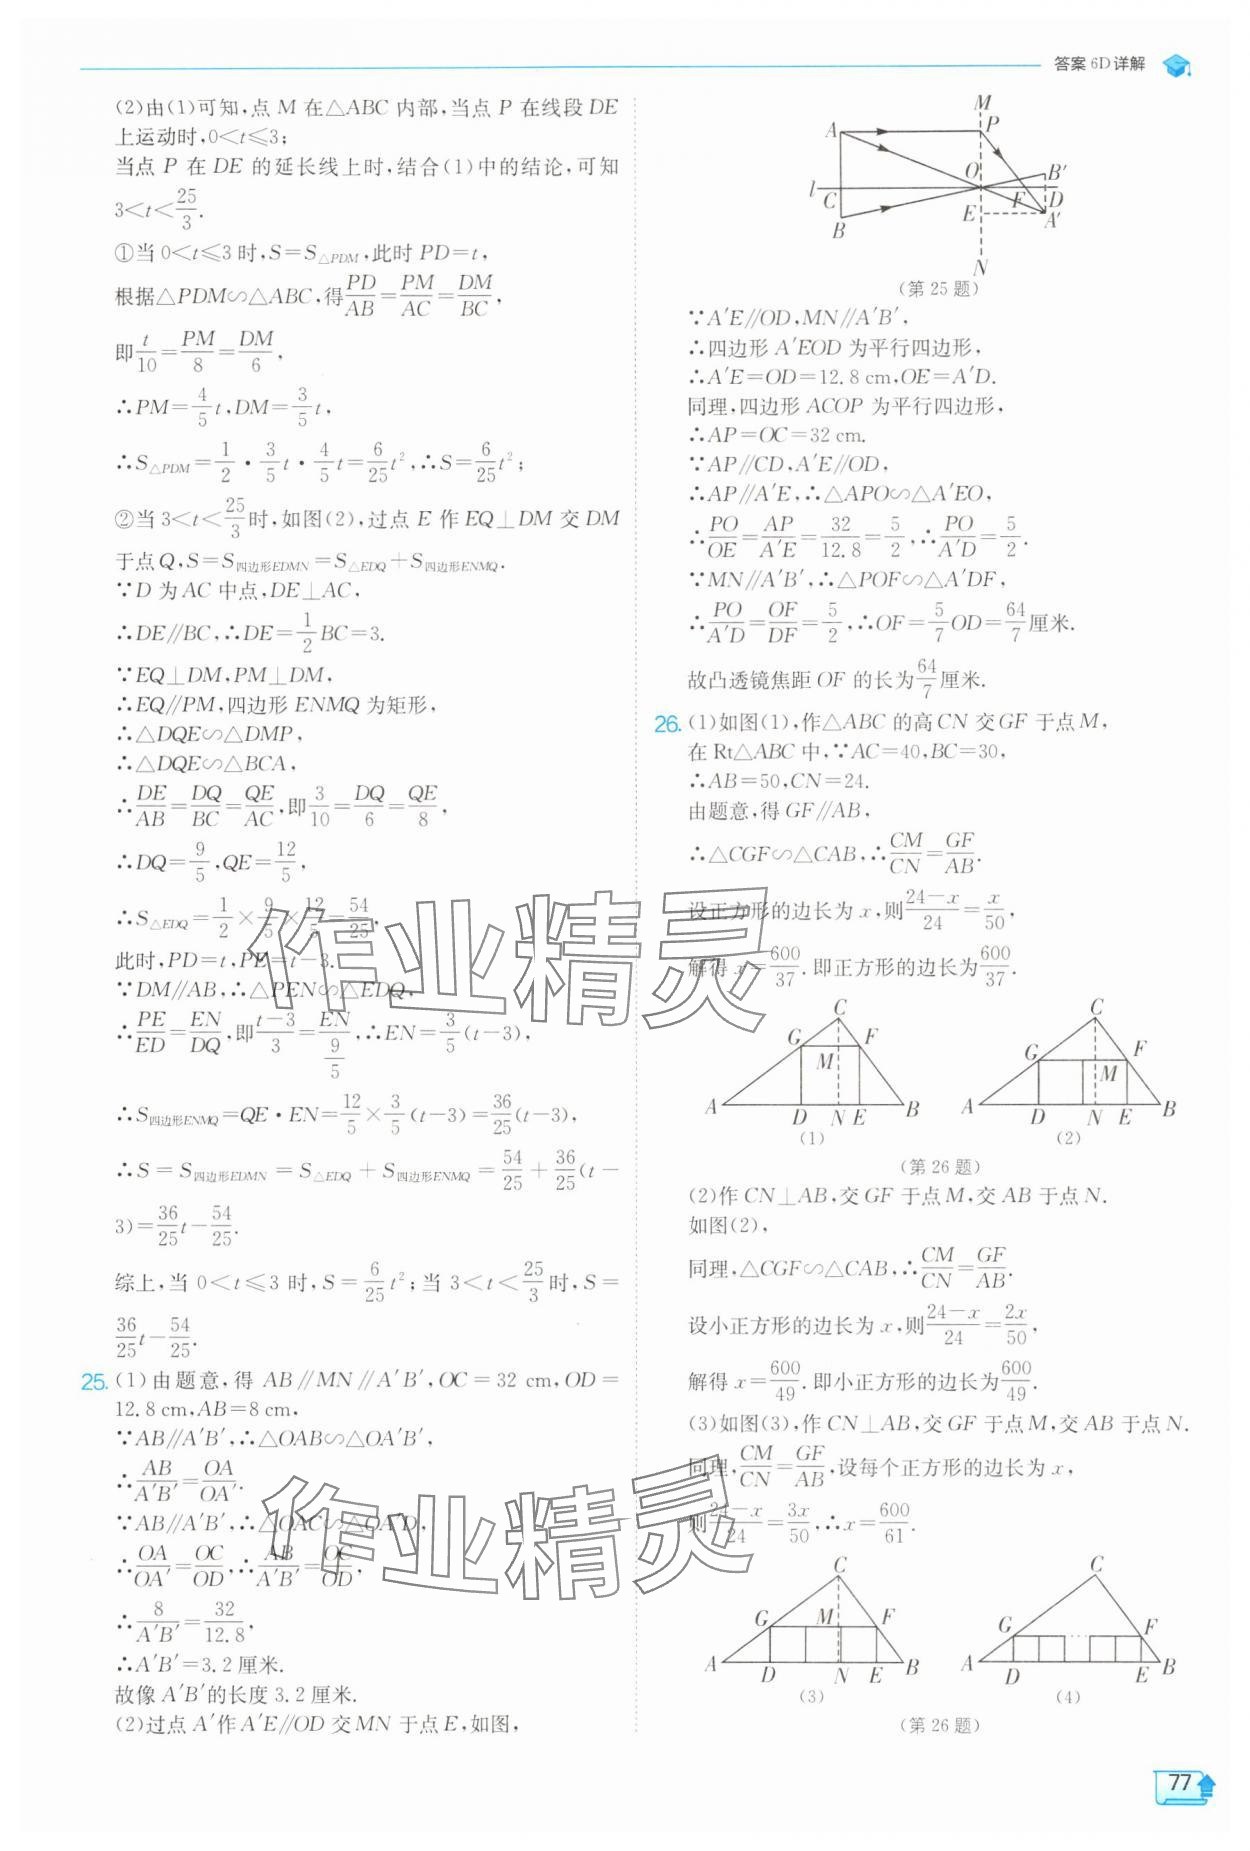 答案 6D 详解
(2)由(1)可知,点 M 在△ABC 内部,当点 P 在线段 DE
上运动时,0<t≤3;
当点 P 在 DE 的延长线上时,结合(1)中的结论,可知
3<t<25/3.
①当 0<t≤3 时,S=S△PDM,此时 PD=t,
根据△PDM∽△ABC,得PD/AB=PM/AC=DM/BC,
即t/10=PM/8=DM/6,
∴PM=4/5t,DM=3/5t,
∴S△PDM=1/2·3/5t·4/5t=6/25t²,∴S=6/25t²;
②当 3<t<25/3时,如图(2),过点 E 作 EQ⊥DM 交 DM
于点 Q,S=S四边形EDMN=S△EDQ+S四边形ENMQ.
∵D 为 AC 中点,DE⊥AC,
∴DE∥BC,∴DE=1/2BC=3.
∵EQ⊥DM,PM⊥DM,
∴EQ∥PM,四边形 ENMQ 为矩形,
∴△DQE∽△DMP,
∴△DQE∽△BCA,
∴DE/AB=DQ/BC=QE/AC,即3/10=DQ/6=QE/8,
∴DQ=9/5,QE=12/5,
∴S△EDQ=1/2×9/5×12/5=54/25,
此时,PD=t,PE=t-3.
∵DM∥AB,∴△PEN∽△EDQ,
∴PE/ED=EN/DQ,即(t-3)/3=EN/(9/5),∴EN=3/5(t-3),
∴S四边形ENMQ=QE·EN=12/5×3/5(t-3)=36/25(t-3),
∴S=S四边形EDMN=S△EDQ+S四边形ENMQ=54/25+36/25(t-
3)=36/25t-54/25.
综上,当 0<t≤3 时,S=6/25t²;当 3<t<25/3时,S=
36/25t-54/25.
25. (1)由题意,得 AB∥MN∥A'B',OC=32 cm,OD=
12.8 cm,AB=8 cm,
∵AB∥A'B',∴△OAB∽△OA'B',
∴AB/A'B'=OA/OA'.
∵AB∥A'B',∴△OAC∽△OA'D,
∴OA/OA'=OC/OD,∴AB/A'B'=OC/OD,
∴8/A'B'=32/12.8,
∴A'B'=3.2 厘米.
故像 A'B'的长度 3.2 厘米.
(2)过点 A'作 A'E∥OD 交 MN 于点 E,如图,
M
A
P
O
B'
l
C
F
D
E
A'
B
N
(第 25 题)
∵A'E∥OD,MN∥A'B',
∴四边形 A'EOD 为平行四边形,
∴A'E=OD=12.8 cm,OE=A'D.
同理,四边形 ACOP 为平行四边形,
∴AP=OC=32 cm.
∵AP∥CD,A'E∥OD,
∴AP∥A'E,∴△APO∽△A'EO,
∴PO/OE=AP/A'E=32/12.8=5/2,∴PO/A'D=5/2.
∵MN∥A'B',∴△POF∽△A'DF,
∴PO/A'D=OF/DF=5/2,∴OF=5/7OD=64/7厘米.
故凸透镜焦距 OF 的长为64/7厘米.
26. (1)如图(1),作△ABC 的高 CN 交 GF 于点 M,
在 Rt△ABC 中,∵AC=40,BC=30,
∴AB=50,CN=24.
由题意,得 GF∥AB,
∴△CGF∽△CAB,∴CM/CN=GF/AB.
设正方形的边长为 x,则(24-x)/24=x/50,
解得 x=600/37.即正方形的边长为600/37.
C
G
F
M
A
D
N
E
B
(1)
C
G
F
M
A
D
N
E
B
(2)
(第 26 题)
(2)作 CN⊥AB,交 GF 于点 M,交 AB 于点 N.
如图(2),
同理,△CGF∽△CAB,∴CM/CN=GF/AB.
设小正方形的边长为 x,则(24-x)/24=2x/50,
解得 x=600/49.即小正方形的边长为600/49.
(3)如图(3),作 CN⊥AB,交 GF 于点 M,交 AB 于点 N.
同理,CM/CN=GF/AB,设每个正方形的边长为 x,
则(24-x)/24=3x/50,∴x=600/61.
C
G
M
F
A
D
N
E
B
(3)
C
G
F
…
A
D
E
B
(4)
(第 26 题)
77
作业精灵
作业精灵